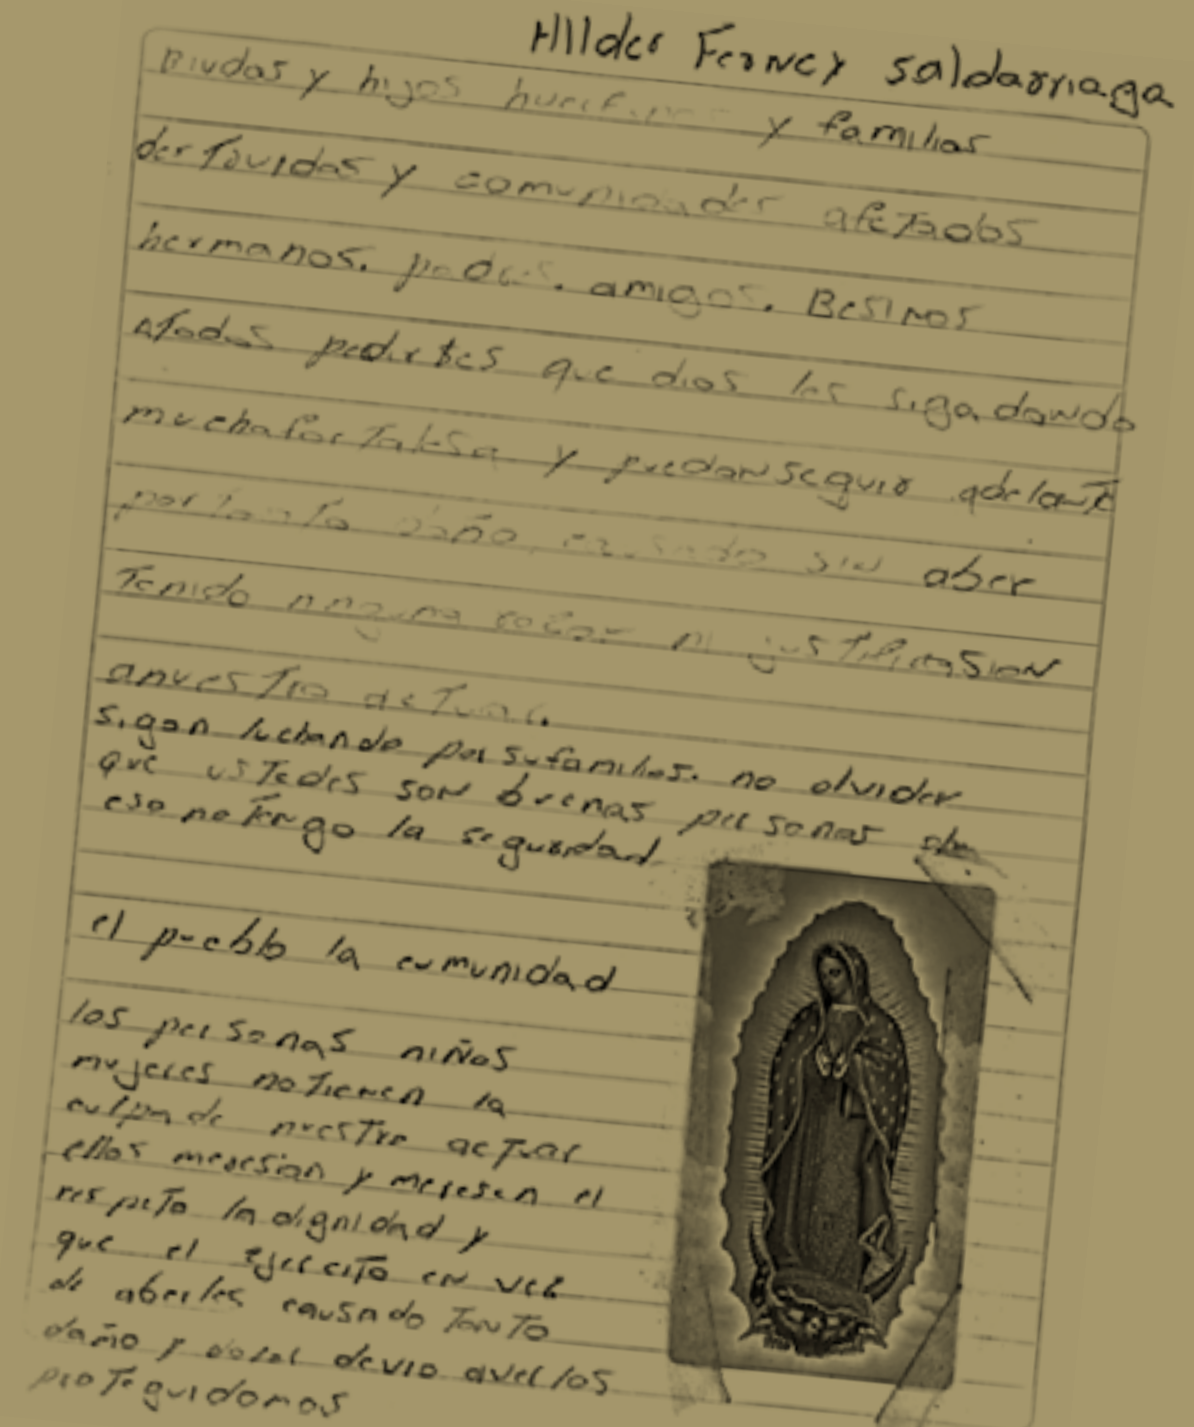 Hilder Ferney saldarriaga
Biudas y hijos y familias
destruidas y comunidades afetados
hermanos. padres. amigos. Besinos
atodos pedirles que dios les siga dando
muchafortalesa y puedanseguir adelante
por tanto daño causado sin aber
Tenido ninguna ni justificasion
anuestro actuar.
sigan luchando por sufamilias. no olviden
que ustedes son buenas personas de
eso notengo la seguridad
el pueblo la comunidad
las personas niños
mujeres notienen la
culpa de nuestro actuar
ellos meresian y meresen el
respeto la dignidad y
que el ejercito en vez
de aberles causado tanto
daño y dolor devio averlos
proteguidomos